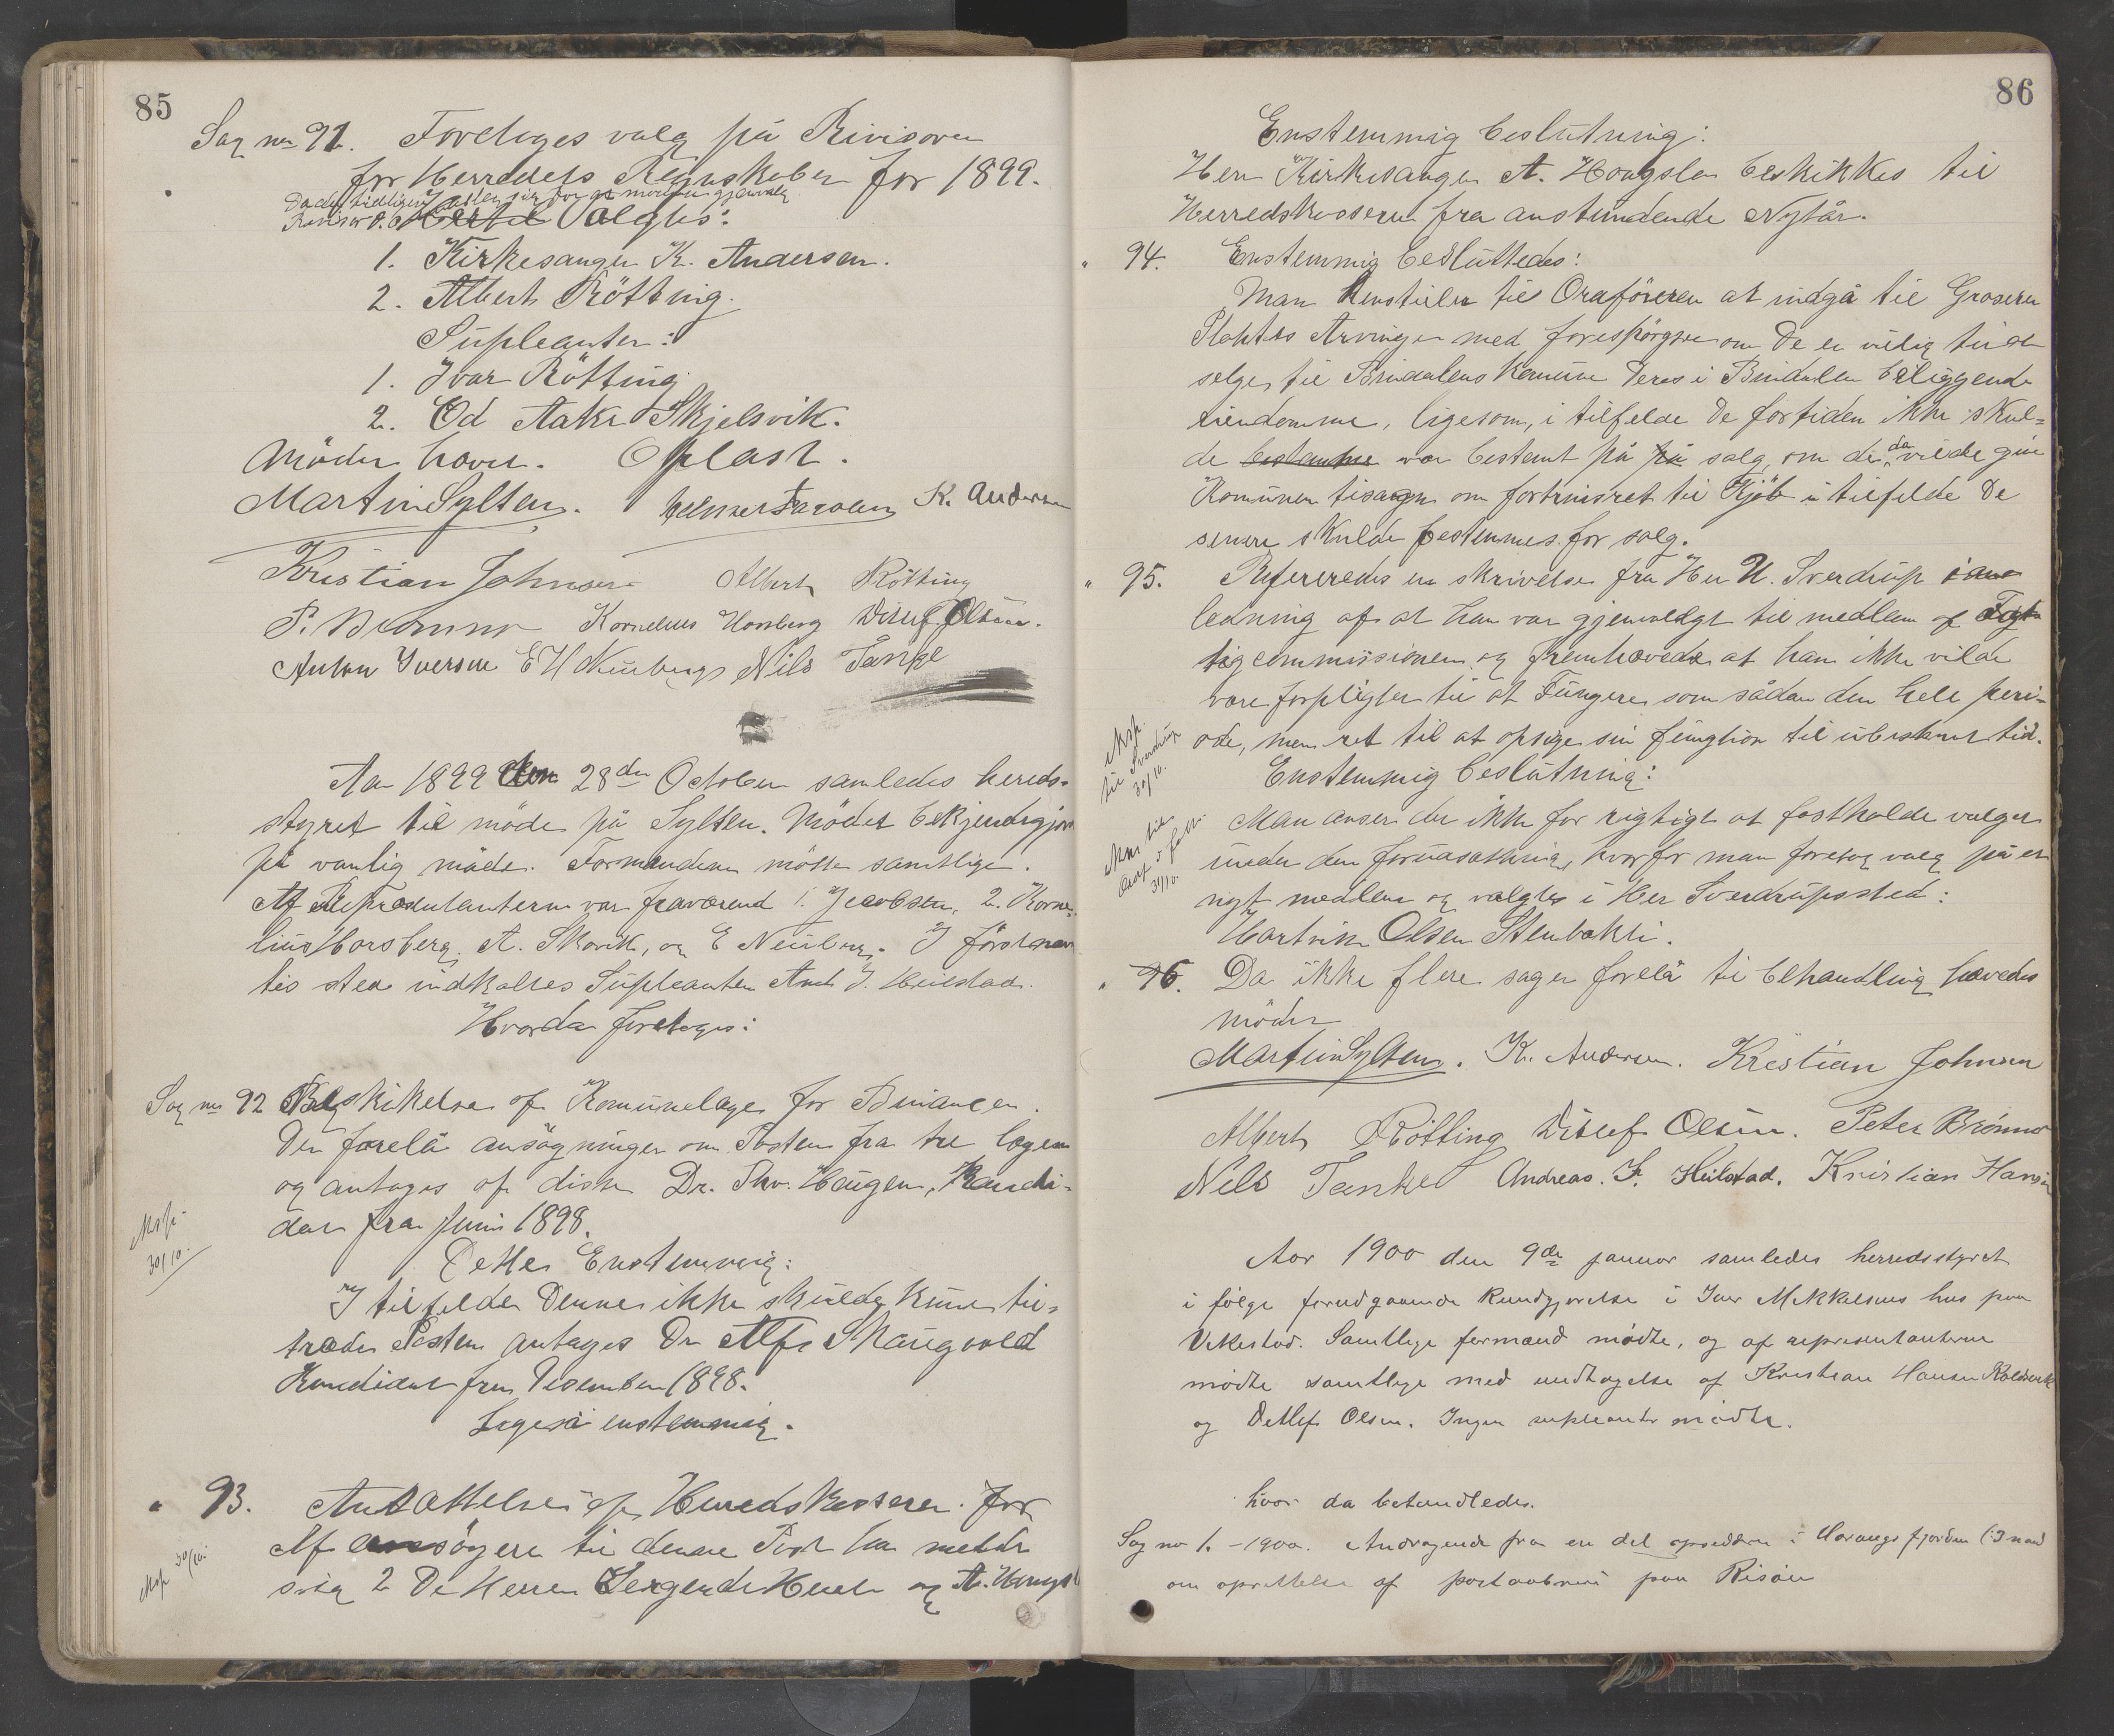 85
Sag nr 91. Foretoges valg på Rivisorer
for Herredets Regnskaber for 1899.
Valgtes:
1. Kirkesanger K. Andersen.
2. Albert Rötting.
Supleanter:
1. Ivar Rötting
2. Od Aakr Skjelsvik.
Mödet hævet. Oplæst.
Martin Sylten. K. Andersen
Kristian Johnsen Albert Rötting
P. Brønmo Kornelius Horsberg Ditlef Olsen.
Anton Iversen E H Neuberg Nils Tanke
Aar 1899 den 28de October samledes hereds-
styret til möde på Sylten. Mödet bekjendtgjort
på vanlig måde. Formændene mötte samtlige.
Af Repræsentanterne var fraværend 1. Jacobsen, 2. Korne-
lius Horsberg, A. Skovik, og E Neuberg. I förstnevn
tes sted indkaltes Supleanten And J. Heilstad.
Hvorda foretoges:
Sag nr 92 Beskikelse af Komunelæge for Bindalen.
Der forelå ansögninger om Posten fra tre læger
og antoges af disse Dr. Thv. Haugen, Kandi-
dat fra Juni 1898.
Dette Enstemmig.
I tilfelde Denne ikke skulde kune til-
træde Posten antages Dr Alf Skaugvold
Kandidat fra Desember 1898.
Ligeså enstemmig.
Msp
30/10.
" 93. Ansættelse af Heredskasserer for
Af ansögere til denne Post har meldt
seig 2 De Herrer Lergende Heste og A. Hougsl
Msp 30/10.
86
Enstemmig beslutning:
Herr Kirkesanger A. Hougslen beskikkes til
Herredskasserer fra anstundende Nytår.
" 94. Enstemmig besluttedes:
Man henstiller til Ordföreren at indgå til Grosserer
Plahtes Arvinger med forespörgsel om De er villig til at
selge til Bindalens Komune Deres i Bindalen beliggende
eiendomme, ligesom, i tilfelde De fortiden ikke skul-
de bestemme var bestemt på på salg, om de da vilde give
Komunen tisagn om fortrinsret til Kjöb i tilfelde De
senere skulde bestemmes for salg.
" 95. Refereredes en skrivelse fra Her U. Sverdrup i an-
ledning af at han var gjenvalgt til medlem af Fgt
tigcommissionen og fremhævede at han ikke vilde
være forpligtet til at Fungere som sådan den hele peri-
ode, men ret til at opsige sin fungtion til ubestemt tid.
Enstemmig beslutning:
Man anser det ikke for rigtigt at fastholde valget
under den forudsætning, hvorfor man foretog valg på et
nyt medlem og valgtes i Her Sverdrups sted:
Hartvik Olsen Stenbakli.
Msp
til Sverdrup
30/10.
31/10.
" 96. Da ikke flere sager forelå til behandling hævedes
mödet
Martin Sylten. K. Andersen. Kristian Johnsen
Albert Rötting Ditlef Olsen. Peter Brønmo
Nils Tanke Andreas. J. Heilstad. Kristian Hansen
Aar 1900 den 9de januar samledes herredsstyret
i følge forudgaaende kundgjørelse i Iver Mikkelsens hus paa
Vikestad. Samtlige formænd mødte, og af representanterne
mødte samtlige med undtagelse af Kristian Hansen Kaldvik
og Detlef Olsen. Ingen supleanter mødte.
hvor da behandledes.
Sag no 1. – 1900. Andragende fra en del opsiddere i Harangsfjorden
om oprettelse af postaabneri paa Risøen